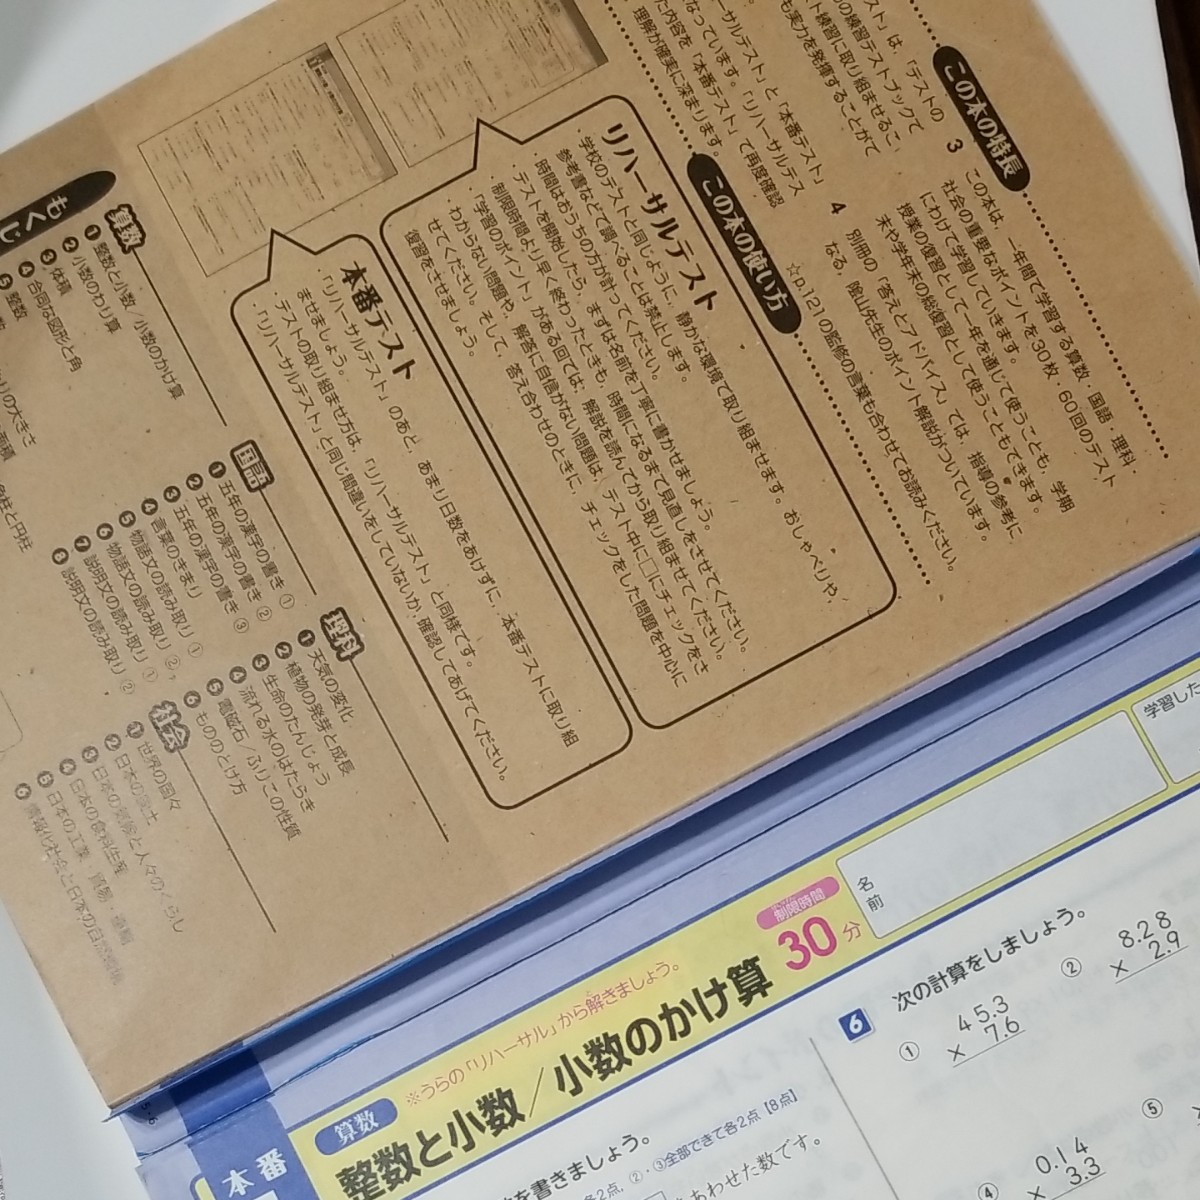 この本の特長
3
この本は、一年間で学習する算数・国語・理科・
社会の重要なポイントを30枚・60回のテスト
にわけて学習していきます。
授業の復習として一年を通じて使うことも、学期
末や学年末の総復習として使うこともできます。
4
別冊の「答えとアドバイス」では、指導の参考に
なる、陰山先生のポイント解説がついています。
☆p.121の監修の言葉も合わせてお読みください。
スト」は、「テストの
の練習テストブックで
ト練習に取り組ませるこ
も実力を発揮することがで
ーサルテスト」と「本番テスト」
なっています。「リハーサルテス
た内容を「本番テスト」で再度確認
理解が確実に深まります。
この本の使い方
リハーサルテスト
・学校のテストと同じように、静かな環境で取り組ませます。おしゃべりや、
参考書などで調べることは禁止します。
・時間はおうちの方が計ってください。
テストを開始したら、まずは名前を丁寧に書かせましょう。
・制限時間より早く終わったときも、時間になるまで見直しをさせてください。
・「学習のポイント」がある回では、解説を読んでから取り組ませてください。
・わからない問題や、解答に自信がない問題は、テスト中に□にチェックをさ
せてください。そして、答え合わせのときに、チェックをした問題を中心に
復習をさせましょう。
本番テスト
・「リハーサルテスト」のあと、あまり日数をあけずに、本番テストに取り組
ませましょう。
・テストの取り組ませ方は、「リハーサルテスト」と同様です。
・「リハーサルテスト」と同じ間違いをしていないか、確認してあげてください。
もくじ
算数
1 整数と小数／小数のかけ算
2 小数のわり算
3 体積
4 合同な図形と角
5 整数
りの大きさ
面積
角柱と円柱
国語
1 五年の漢字の書き ①
2 五年の漢字の書き ②
3 五年の漢字の書き ③
4 言葉のきまり
5 物語文の読み取り ①
6 物語文の読み取り ②
7 説明文の読み取り ①
8 説明文の読み取り ②
理科
1 天気の変化
2 植物の発芽と成長
3 生命のたんじょう
4 流れる水のはたらき
5 電磁石／ふりこの性質
6 もののとけ方
社会
1 世界の国々
2 日本の国土
3 日本の気候と人々のくらし
4 日本の食料生産
5 日本の工業・貿易・運輸
6 情報化社会と日本の自然環境
本番
算数
※うらの「リハーサル」から解きましょう。
整数と小数／小数のかけ算
制限時間
30分
名前
学習した
を書きましょう。
各2点、②・③全部できて各2点【8点】
をあわせた数です。
6 次の計算をしましょう。
① 45.3
× 7.6
② 8.28
× 2.9
④ 0.14
× 3.3
⑤